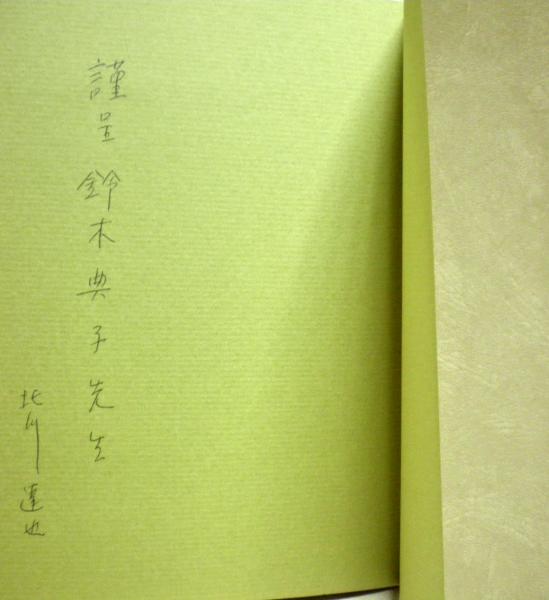 謹呈 鈴木典子先生
北川達也